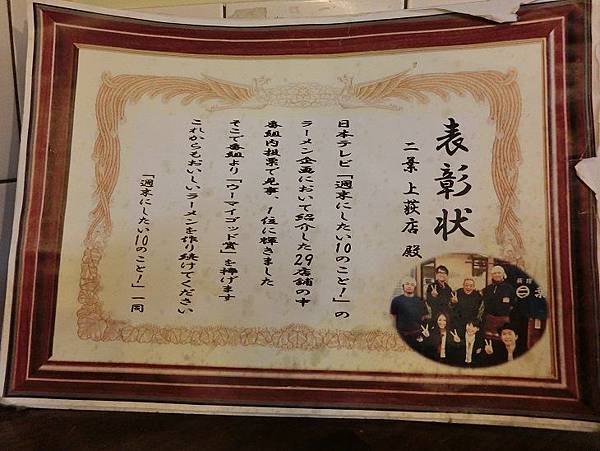 表彰状
二葉 上荻店 殿
日本テレビ「週末にしたい10のこと!」の
ラーメン企画において紹介した29店舗の中
番組内投票で見事、1位に輝きました
そこで番組より「ウーマイゴッド賞」を捧げます
これからもおいしいラーメンを作り続けてください
「週末にしたい10のこと!」一同